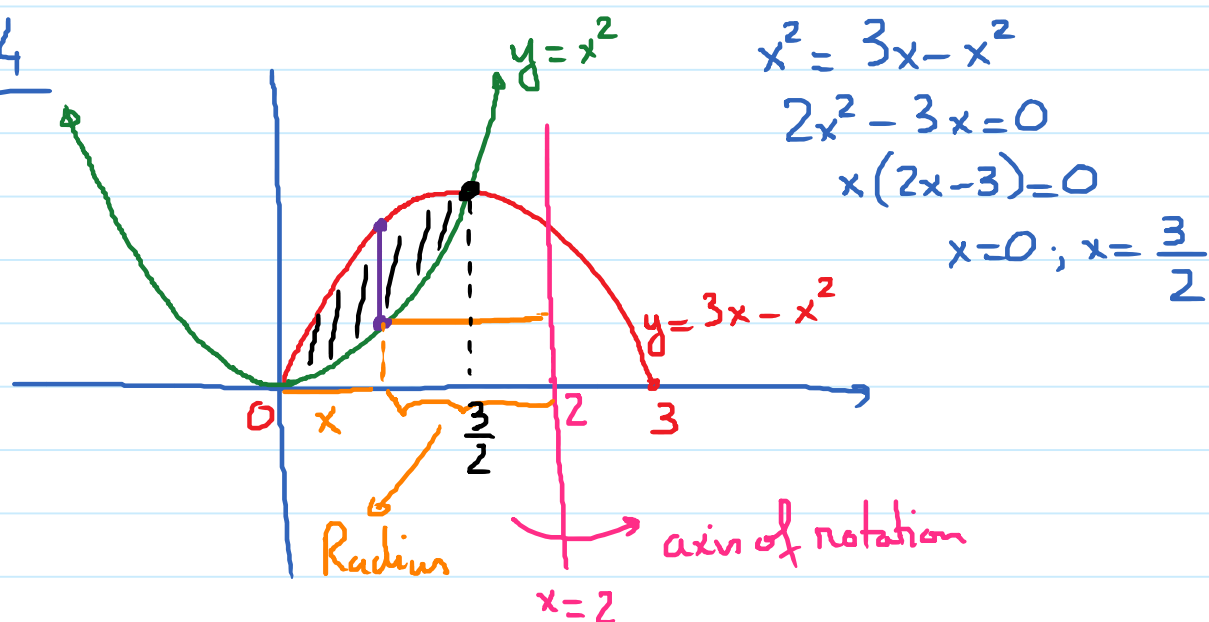 4
y = x²
x² = 3x - x²
2x² - 3x = 0
x(2x-3) = 0
x = 0 ; x = 3/2
y = 3x - x²
0
x
3/2
2
3
Radius
axis of rotation
x = 2